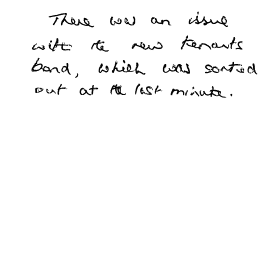 There was an issue
with the new tenants
bond, which was sorted
out at the last minute.